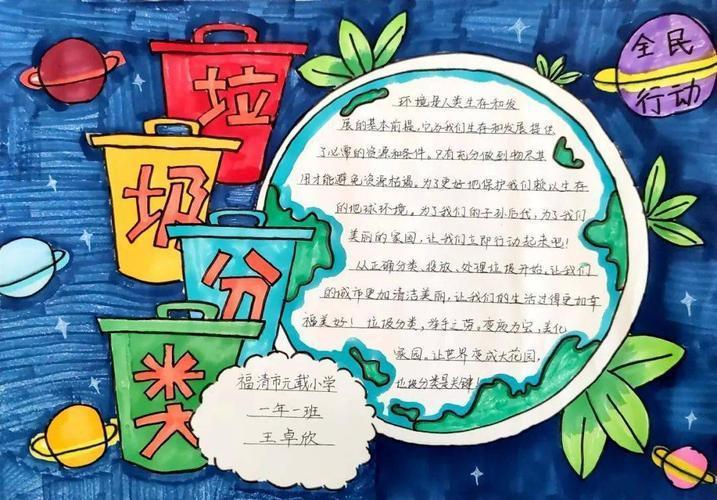 垃
圾
分
类
全民
行动
环境是人类生存和发
展的基本前提。它为我们生存和发展提供
了必需的资源和条件。只有充分做到物尽其
用才能避免资源枯竭。为了更好地保护我们赖以生存
的地球环境。为了我们的子孙后代，为了我们
美丽的家园，让我们立即行动起来吧！
从正确分类、投放、处理垃圾开始，让我们
的城市更加清洁美丽，让我们的生活过得更加幸
福美好！垃圾分类，举手之劳，变废为宝，美化
家园。让世界变成大花园，
垃圾分类是关键
福清市元载小学
一年一班
王卓欣